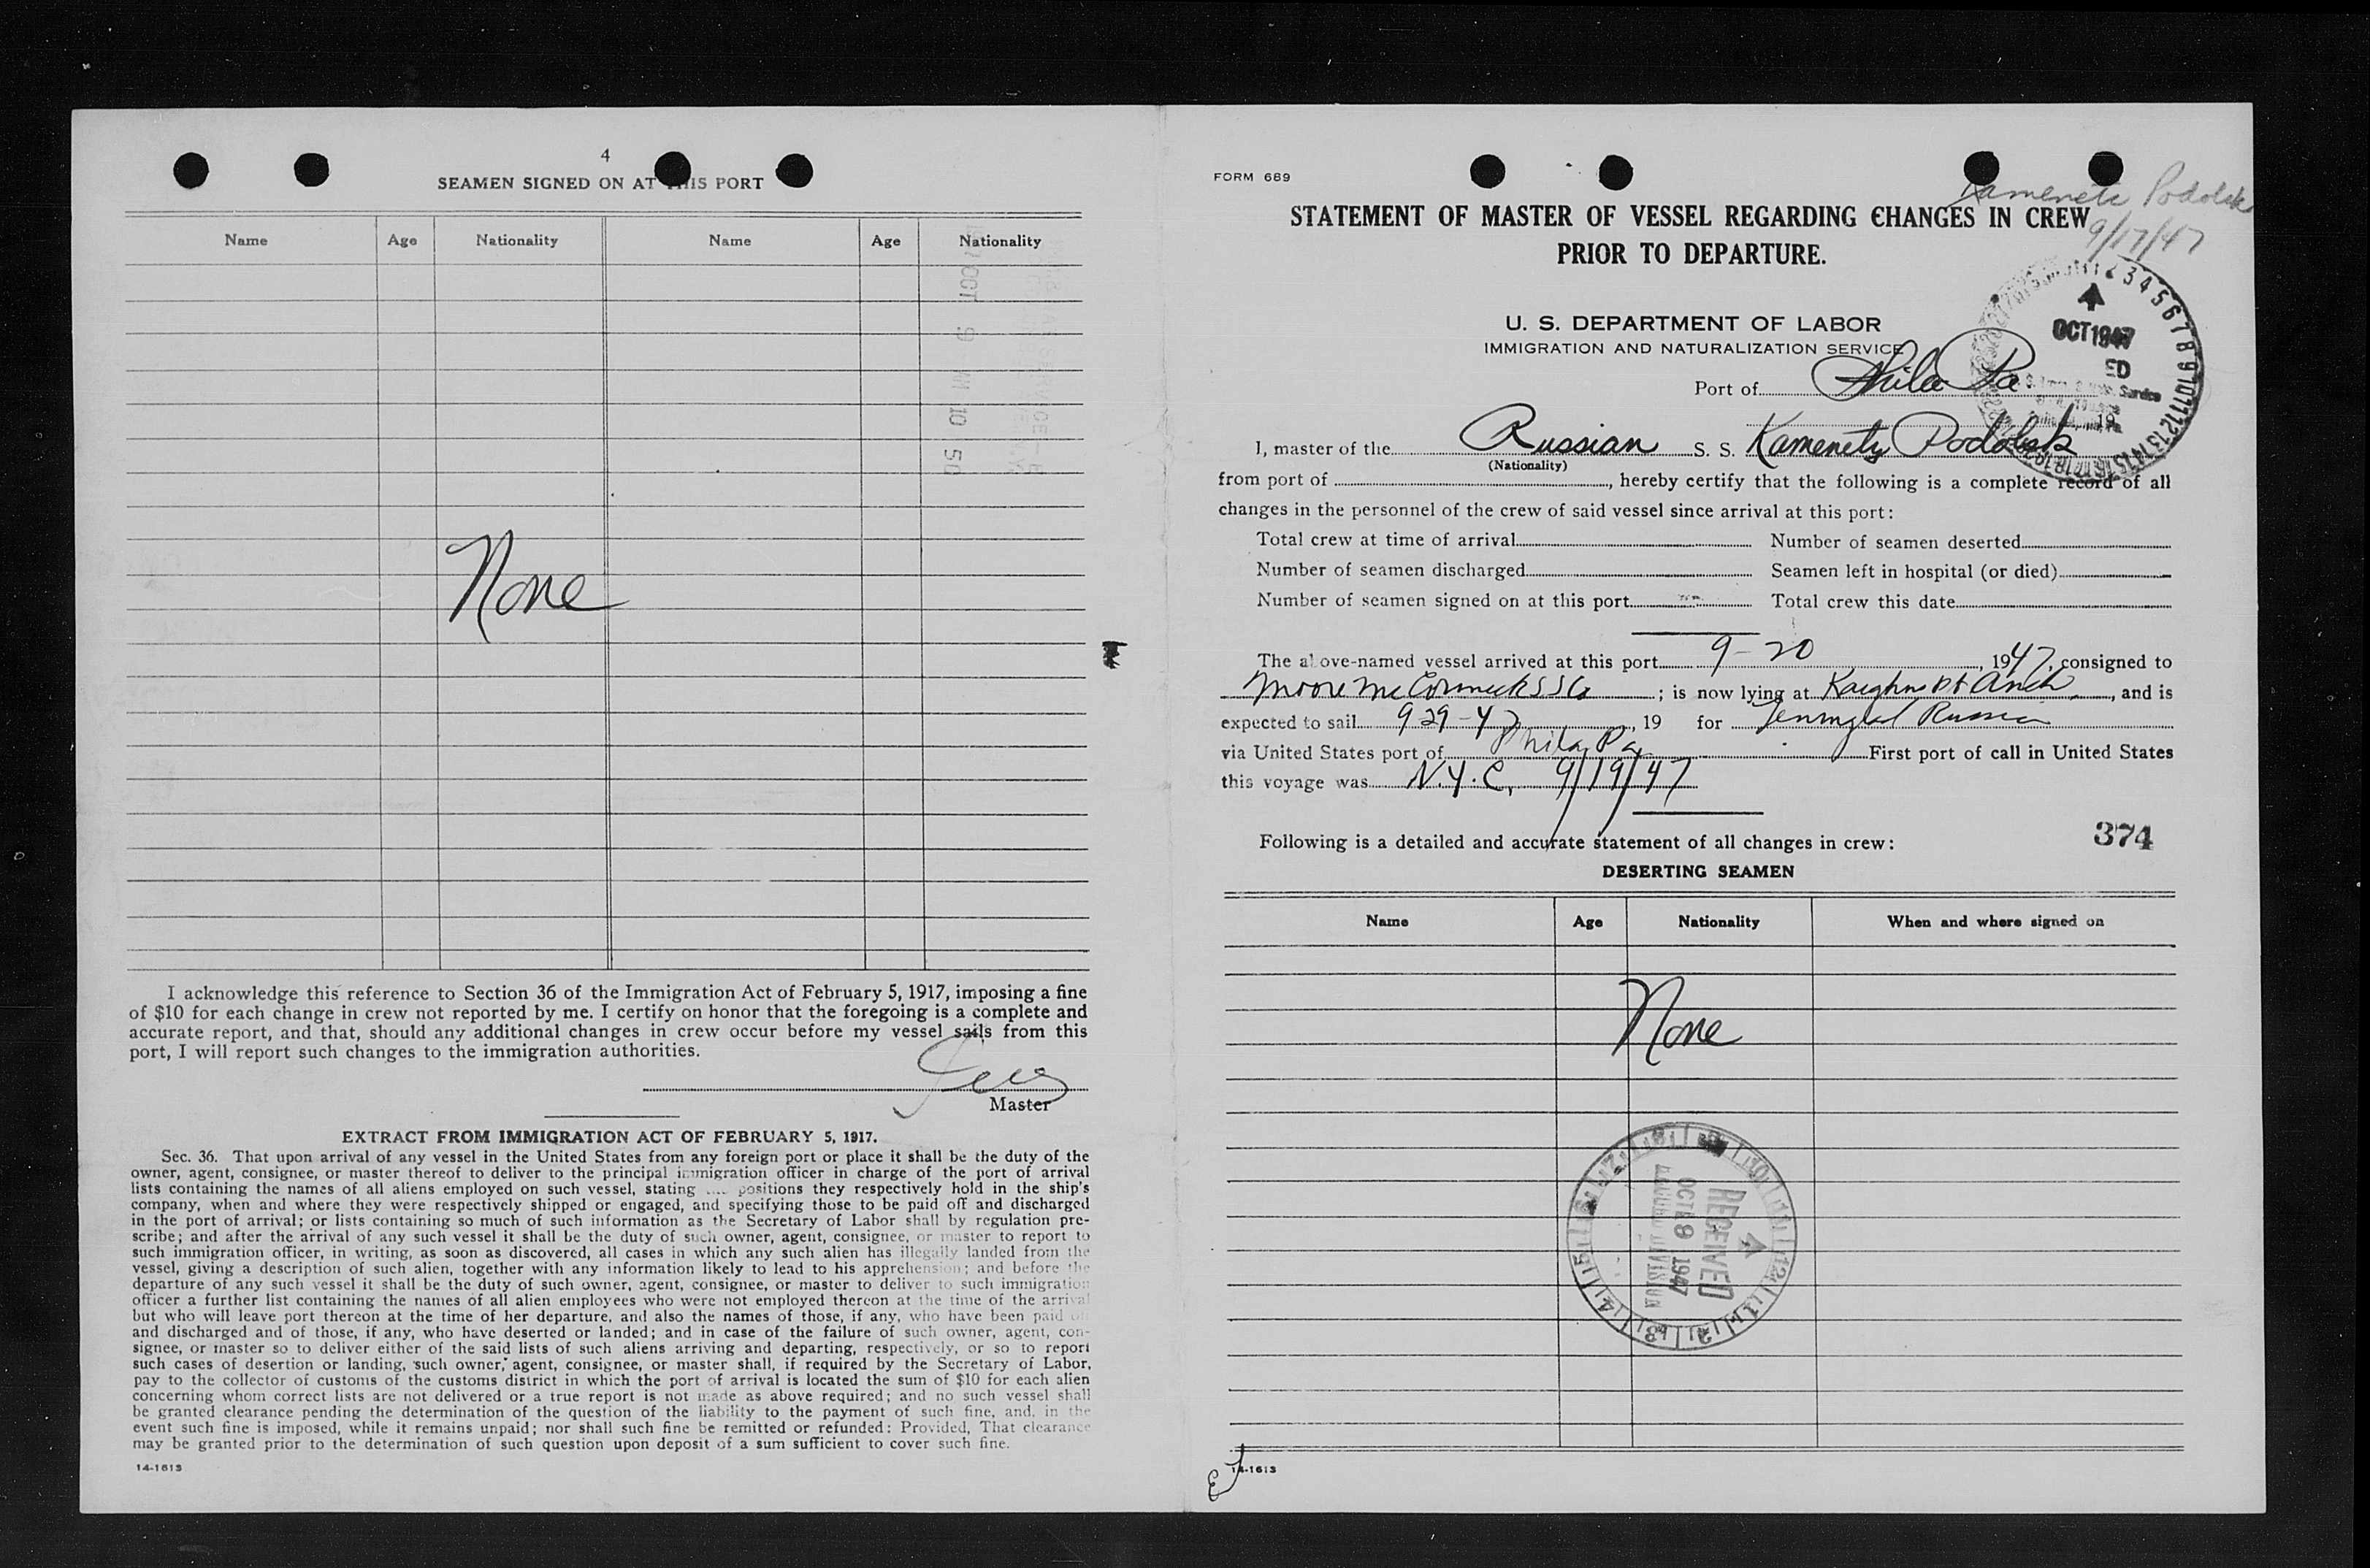 4
SEAMEN SIGNED ON AT THIS PORT
Name Age Nationality Name Age Nationality
OCT 9 AM 10 50
None
I acknowledge this reference to Section 36 of the Immigration Act of February 5, 1917, imposing a fine
of $10 for each change in crew not reported by me. I certify on honor that the foregoing is a complete and
accurate report, and that, should any additional changes in crew occur before my vessel sails from this
port, I will report such changes to the immigration authorities.
Master
EXTRACT FROM IMMIGRATION ACT OF FEBRUARY 5, 1917.
Sec. 36. That upon arrival of any vessel in the United States from any foreign port or place it shall be the duty of the
owner, agent, consignee, or master thereof to deliver to the principal immigration officer in charge of the port of arrival
lists containing the names of all aliens employed on such vessel, stating the positions they respectively hold in the ship's
company, when and where they were respectively shipped or engaged, and specifying those to be paid off and discharged
in the port of arrival; or lists containing so much of such information as the Secretary of Labor shall by regulation pre-
scribe; and after the arrival of any such vessel it shall be the duty of such owner, agent, consignee, or master to report to
such immigration officer, in writing, as soon as discovered, all cases in which any such alien has illegally landed from the
vessel, giving a description of such alien, together with any information likely to lead to his apprehension; and before the
departure of any such vessel it shall be the duty of such owner, agent, consignee, or master to deliver to such immigration
officer a further list containing the names of all alien employees who were not employed thereon at the time of the arrival
but who will leave port thereon at the time of her departure, and also the names of those, if any, who have been paid off
and discharged and of those, if any, who have deserted or landed; and in case of the failure of such owner, agent, con-
signee, or master so to deliver either of the said lists of such aliens arriving and departing, respectively, or so to report
such cases of desertion or landing, such owner, agent, consignee, or master shall, if required by the Secretary of Labor,
pay to the collector of customs of the customs district in which the port of arrival is located the sum of $10 for each alien
concerning whom correct lists are not delivered or a true report is not made as above required; and no such vessel shall
be granted clearance pending the determination of the question of the liability to the payment of such fine, and, in the
event such fine is imposed, while it remains unpaid; nor shall such fine be remitted or refunded: Provided, That clearance
may be granted prior to the determination of such question upon deposit of a sum sufficient to cover such fine.
14-1613
FORM 689
Kamenetz Podolsk
9/17/47
STATEMENT OF MASTER OF VESSEL REGARDING CHANGES IN CREW
PRIOR TO DEPARTURE.
OCT 1947
U. S. DEPARTMENT OF LABOR
IMMIGRATION AND NATURALIZATION SERVICE
Port of Phila Pa
19
I, master of the Russian S. S. Kamenetz Podolsk
(Nationality)
from port of , hereby certify that the following is a complete record of all
changes in the personnel of the crew of said vessel since arrival at this port:
Total crew at time of arrival Number of seamen deserted
Number of seamen discharged Seamen left in hospital (or died)
Number of seamen signed on at this port Total crew this date
The above-named vessel arrived at this port 9-20, 1947, consigned to
Moore McCormick SS Co ; is now lying at Kaighn Pt Anch, and is
expected to sail 9 29-47, 19 for Leningrad Russia
via United States port of Phila, Pa. First port of call in United States
this voyage was N.Y.C, 9/19/47
Following is a detailed and accurate statement of all changes in crew:
374
DESERTING SEAMEN
Name Age Nationality When and where signed on
None
RECEIVED
OCT 9 1947
RECORD DIVISION
14-1613